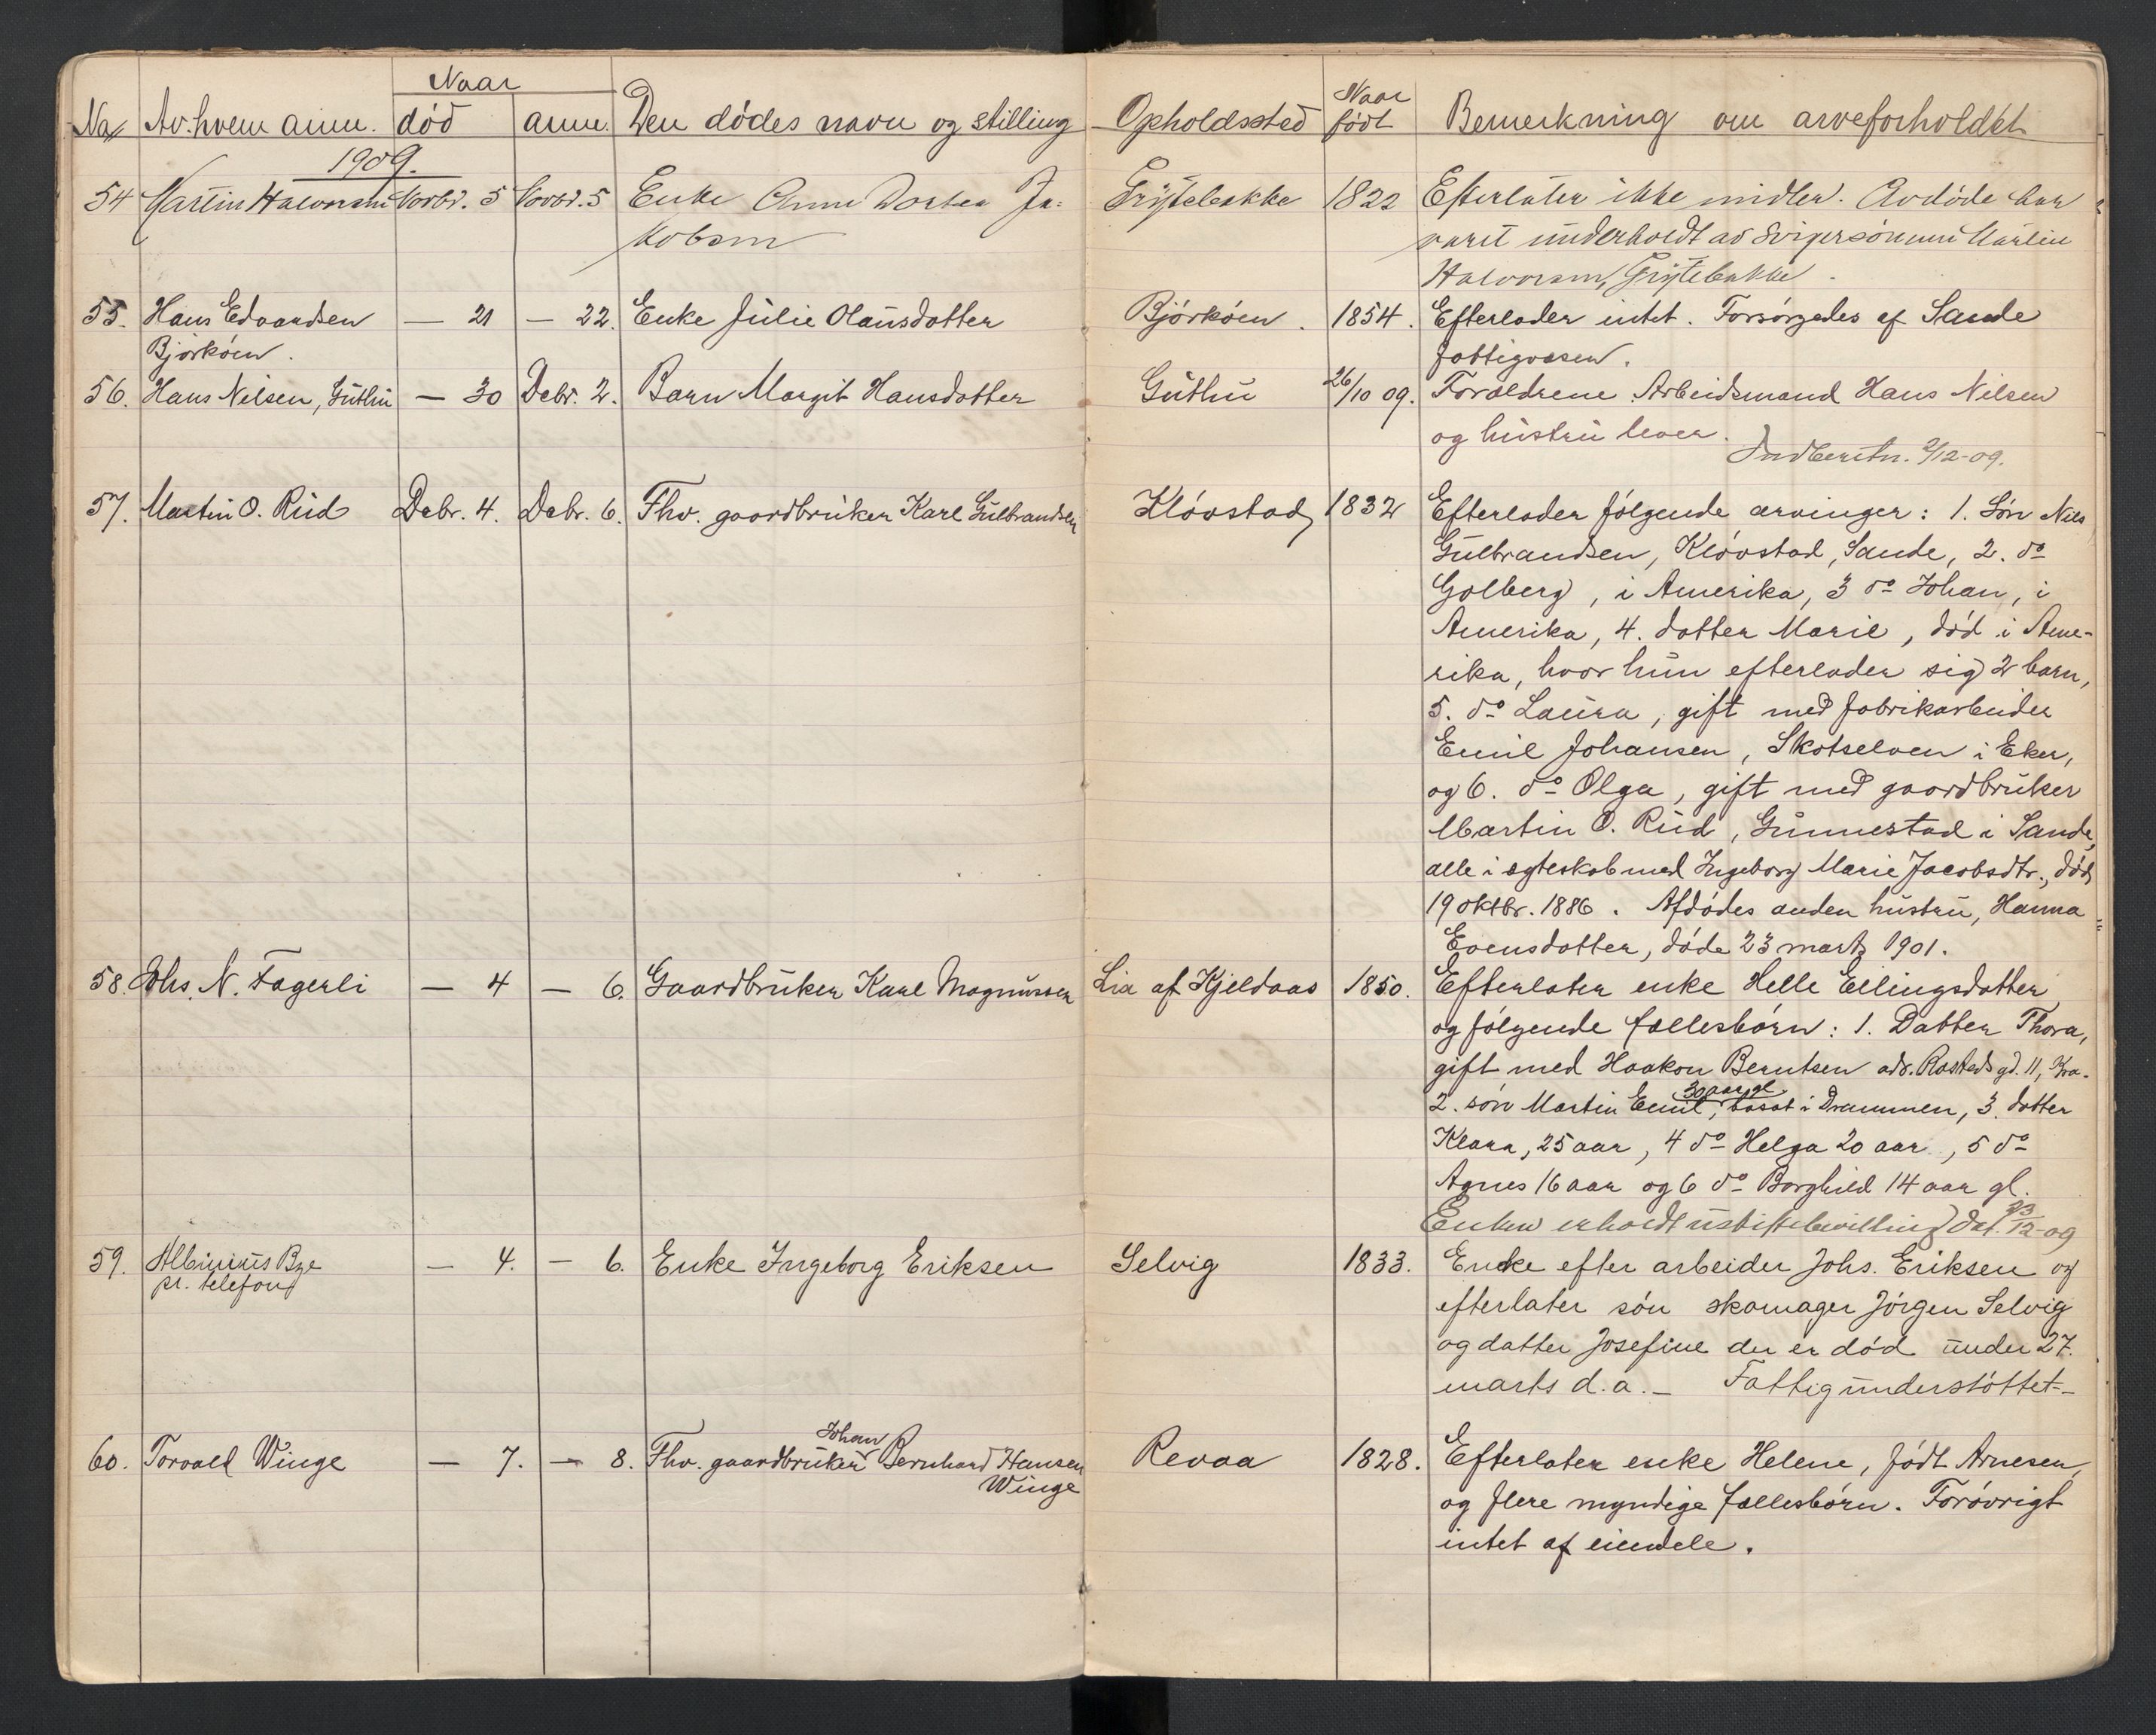 Naar
No. Av. hvem anm. død anm. Den dødes navn og stilling Opholdssted Naar født Bemerkning om arveforholdet
1909.
54 Martin Halvorsen Novbr. 5 Novbr. 5 Enke Anne Dortea Ja- 1822 Efterlater ikke midler. Avdøde har
kobsen været underholdt av svigersønnen Martin
Halvorsen,
55. Hans Edvardsen — 21 — 22. Enke Julie Olausdatter Bjørkøen. 1854. Efterlader intet. Forsørgedes af Sande
Bjørkøen. fattigvæsen.
56. Hans Nilsen, Guthu — 30 Debr. 2. Barn Margit Hansdatter Guthu 26/10 09. Forældrene Arbeidsmand Hans Nilsen
og hustru lever.
Indberetn. 2/12-09.
57. Martin O. Rud Debr. 4. Debr. 6. Fhv. gaardbruker Karl Gulbrandsen Kløvstad 1832 Efterlader følgende arvinger: 1. Søn Nils
Gulbrandsen, Kløvstad, Sande, 2. do
Golberg, i Amerika, 3 do Johan, i
Amerika, 4. datter Marie, død i Ame-
rika, hvor hun efterlader sig 2 barn,
5. do Laura, gift med fabrikarbeider
Emil Johansen, Skotselven i Eker,
og 6. do Olga, gift med gaardbruker
Martin O. Rud, Gunnestad i Sande,
alle i egteskab med Ingeborg Marie Jacobsdtr., død
19 oktbr. 1886. Afdødes anden hustru, Hanna
Evensdatter, døde 23 marts 1901.
58. Johs. N. Fagerli — 4 — 6. Gaardbruker Karl Magnussen Lia af Kjeldaas 1850. Efterlater enke Helle Ellingsdatter
og følgende fællesbørn: 1. Datter Thora,
gift med Haakon Berntsen adr. Rostedsgd. 11, Kra.
30 aar gl.
2. søn Martin Emil, bosat i Drammen, 3. datter
Klara, 25 aar, 4 do Helga 20 aar, 5 do
Agnes 16 aar og 6 do Borghild 14 aar gl.
Enken erholdt uskiftebevilling dat. 23/12-09
59. Albinius Bye — 4. — 6. Enke Ingeborg Eriksen Selvig 1833. Enke efter arbeider Johs. Eriksen og
pr. telefon efterlater søn skomager Jørgen Selvig
og datter Josefine der er død under 27.
marts d.a. — Fattigunderstøttet —
60. Torvald Winge — 7. — 8. Fhv. gaardbruker Johan Bernhard Hansen Revaa 1828. Efterlater enke Helene, født Arnesen,
Winge og flere myndige fællesbørn. Forøvrigt
intet af eiendele.